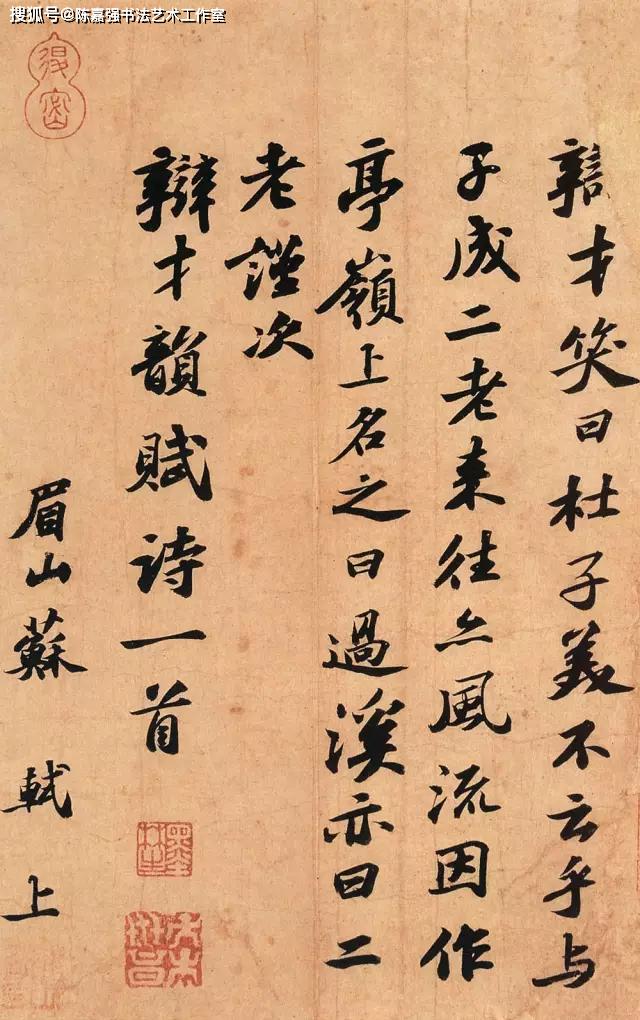 搜狐号@陈嘉强书法艺术工作室
辯才笑曰杜子美不云乎与
子成二老来往亦風流因作
亭嶺上名之曰過溪亦曰二
老謹次
辯才韻賦詩一首
眉山蘇軾上